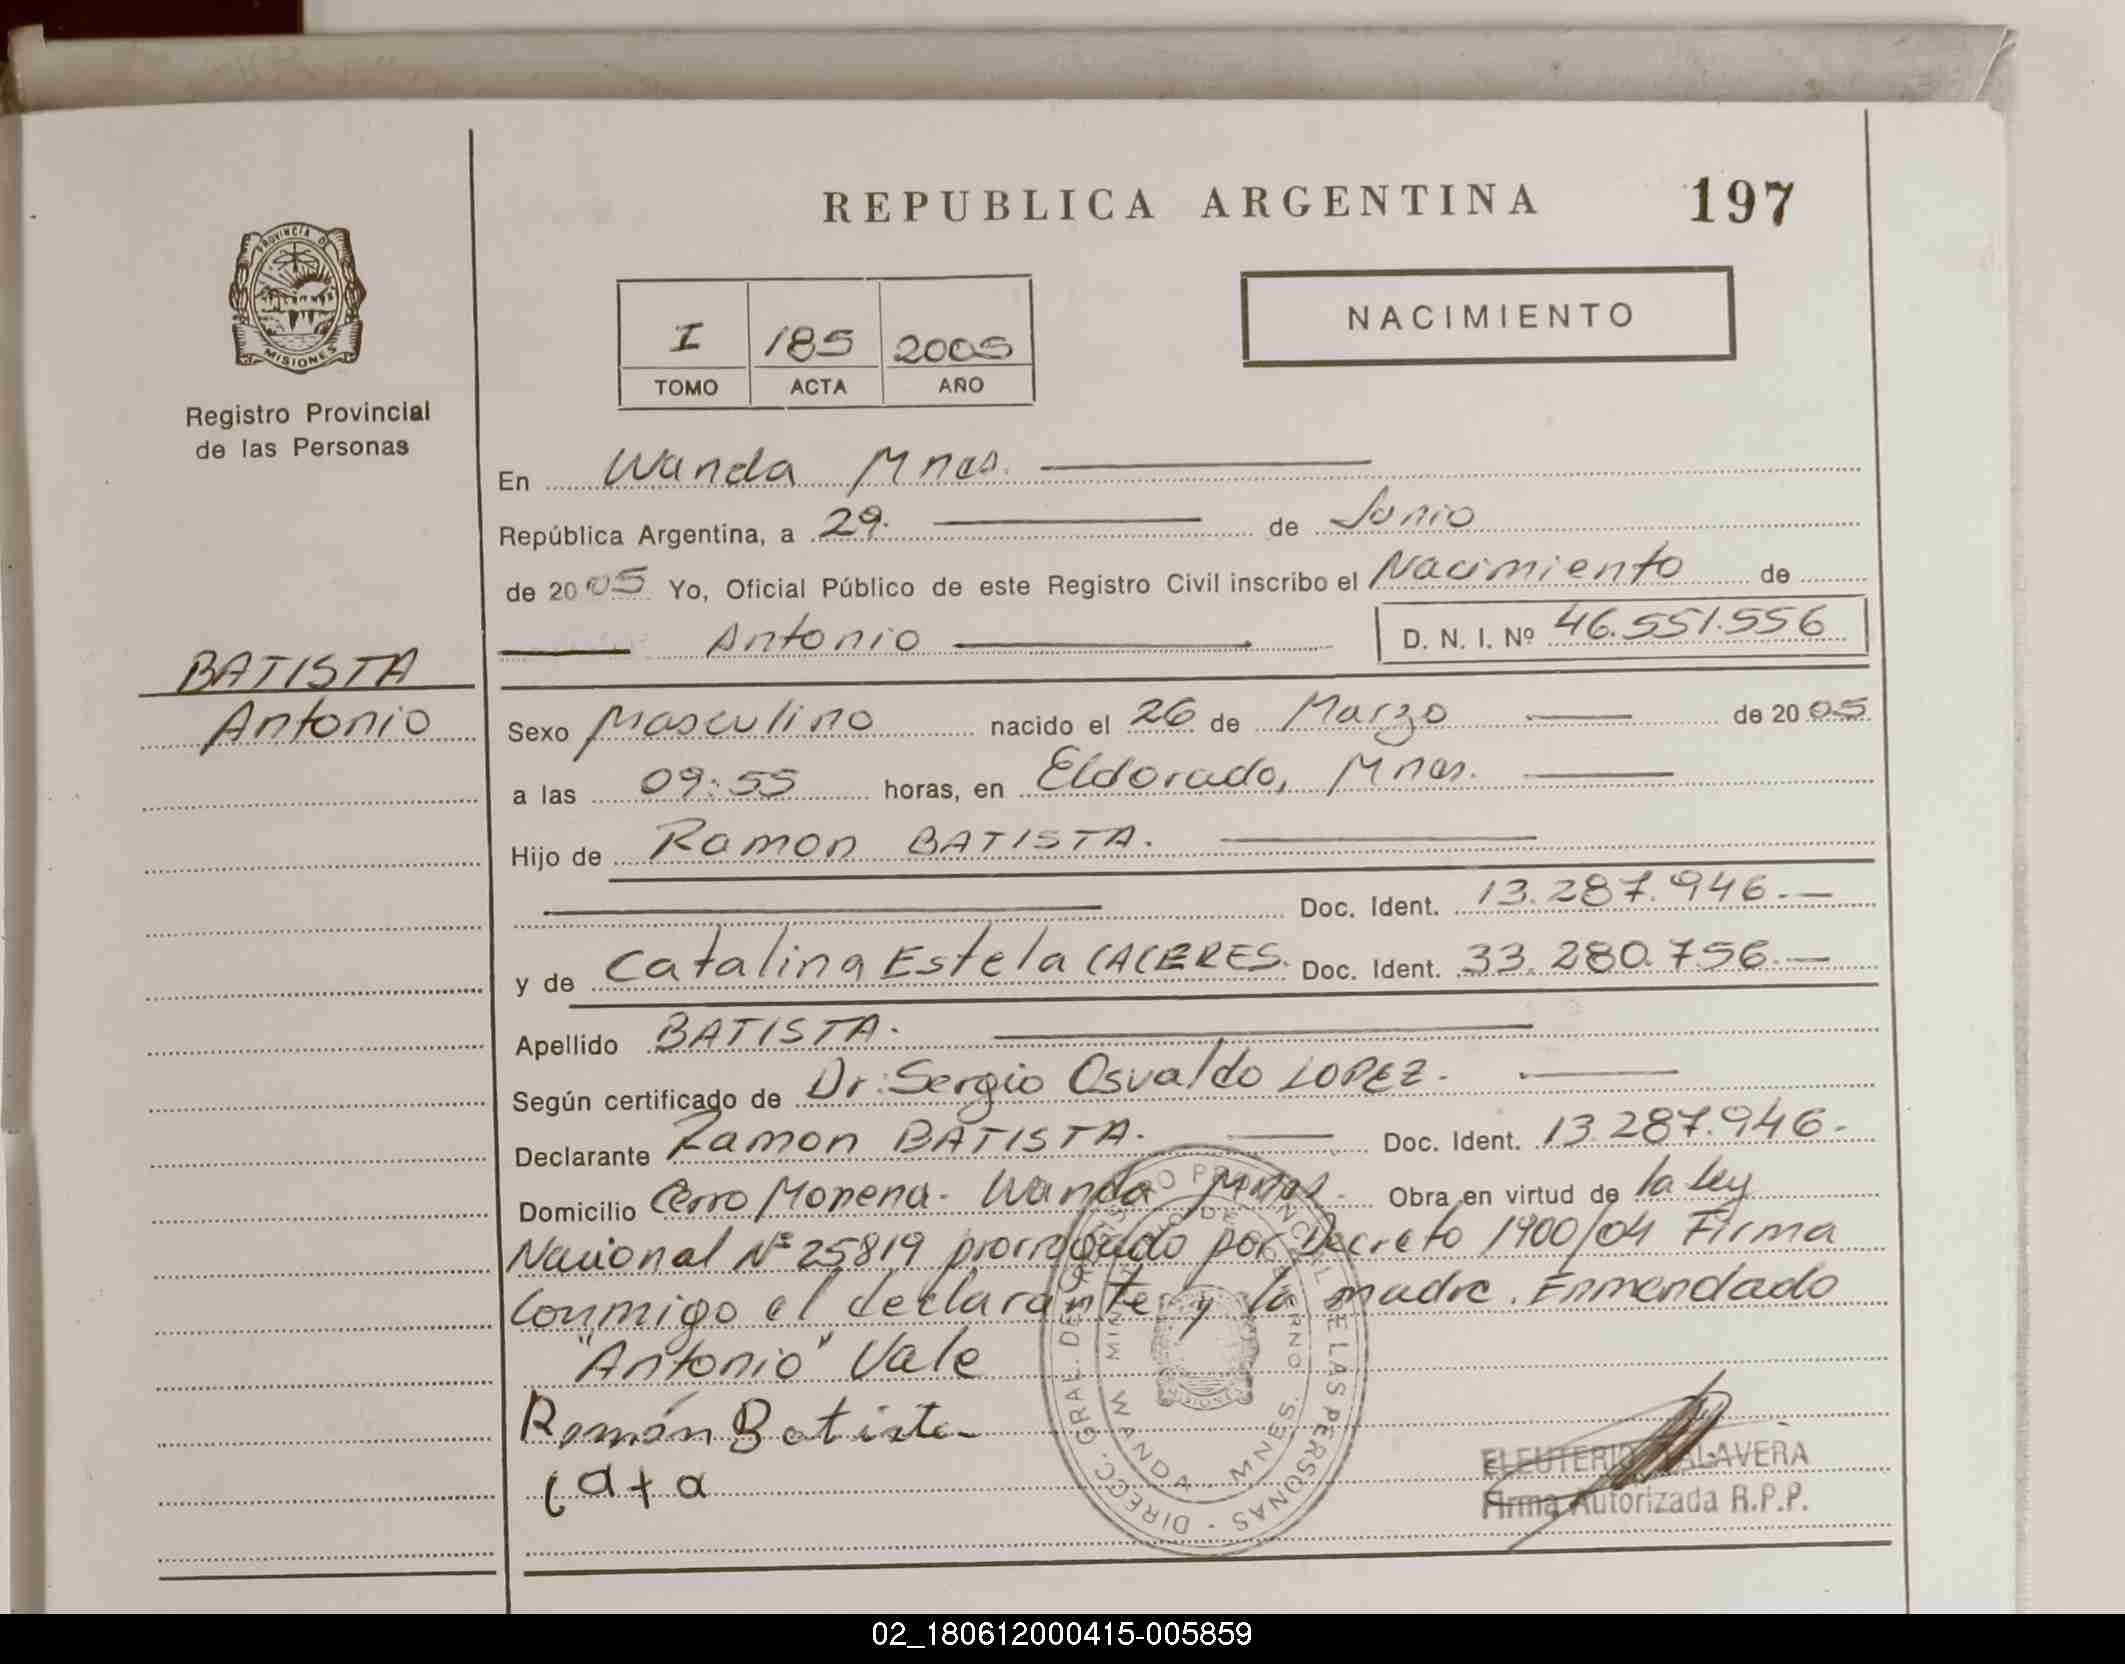 REPUBLICA ARGENTINA 197
PROVINCIA DE
MISIONES
Registro Provincial
de las Personas
NACIMIENTO
I 185 2005
TOMO ACTA AÑO
En Wanda Mnes.
República Argentina, a 29. de Junio
de 2005 Yo, Oficial Público de este Registro Civil inscribo el Nacimiento de
Antonio D. N. I. Nº 46.551.556
BATISTA
Antonio
Sexo Masculino nacido el 26 de Marzo de 2005
a las 09:55 horas, en Eldorado, Mnes.
Hijo de Ramon BATISTA.
Doc. Ident. 13.287.946.-
y de Catalina Estela CACERES. Doc. Ident. 33.280.756.-
Apellido BATISTA.
Según certificado de Dr. Sergio Osvaldo LOPEZ.
Declarante Ramon BATISTA. Doc. Ident. 13.287.946.
Domicilio Cerro Morena. Wanda Mnes. Obra en virtud de la ley
Nacional Nº 25819 prorrogado por Decreto 1900/04 Firma
Conmigo el declarante y la madre. Enmendado
"Antonio" Vale
Ramón Batista
Cata
DIRECC. GRAL. DEL REGISTRO PROVINCIAL DE LAS PERSONAS
MINISTERIO DE GOBIERNO
WANDA MNES.
MISIONES
ELEUTERIO TALAVERA
Firma Autorizada R.P.P.
02_180612000415-005859